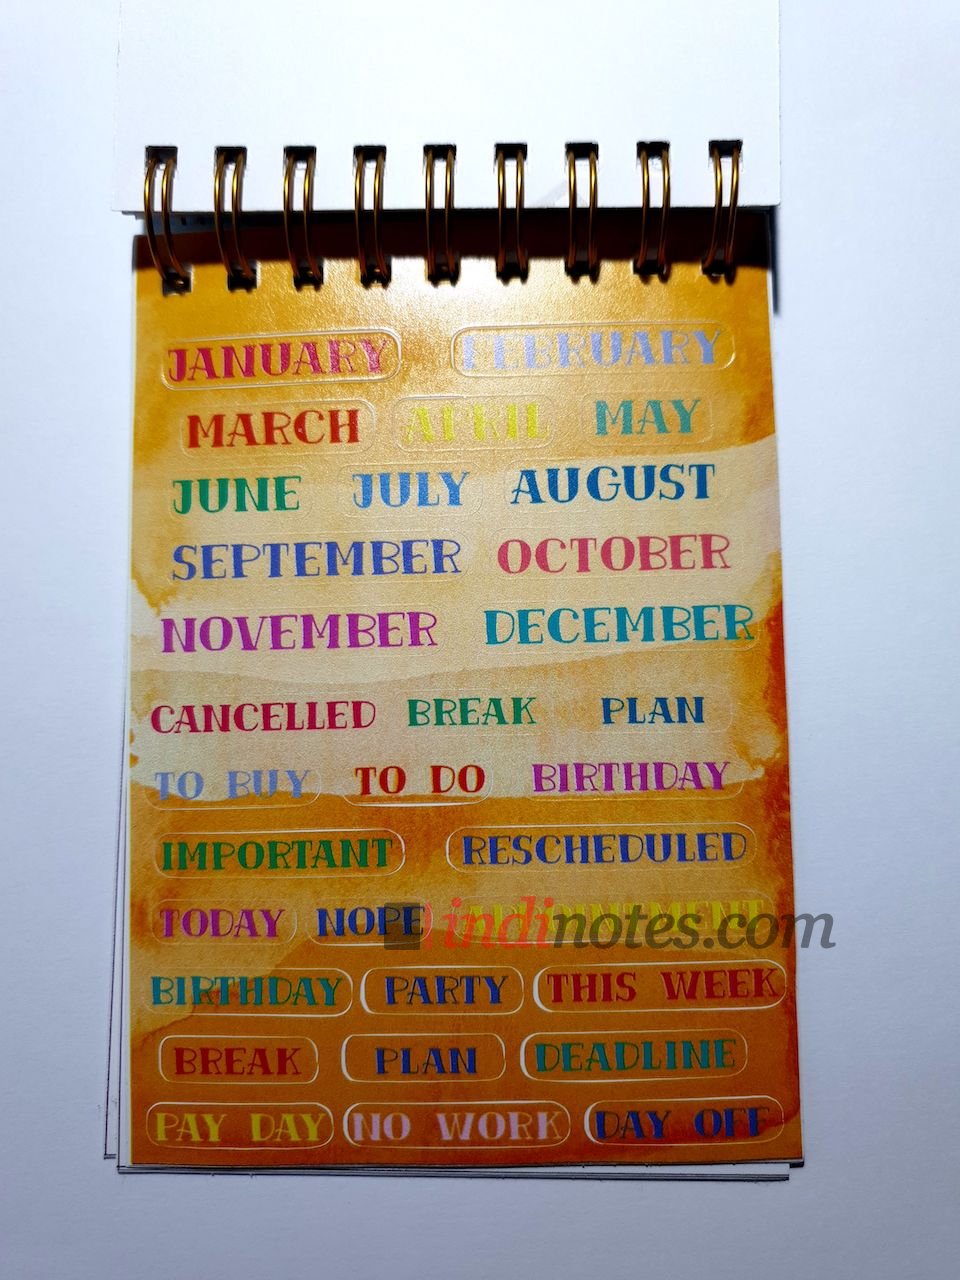 JANUARY FEBRUARY
MARCH APRIL MAY
JUNE JULY AUGUST
SEPTEMBER OCTOBER
NOVEMBER DECEMBER
CANCELLED BREAK PLAN
TO BUY TO DO BIRTHDAY
IMPORTANT RESCHEDULED
TODAY NOPE APPOINTMENT
indinotes.com
BIRTHDAY PARTY THIS WEEK
BREAK PLAN DEADLINE
PAY DAY NO WORK DAY OFF